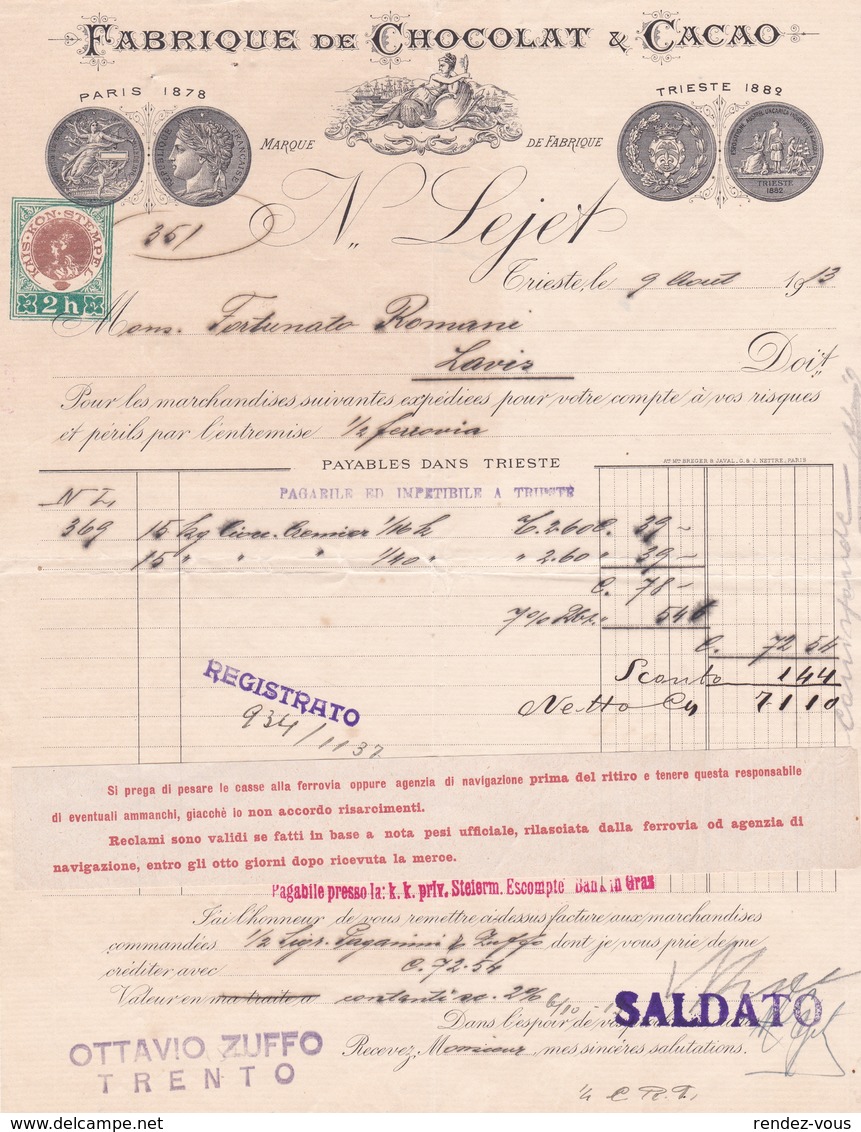 FABRIQUE DE CHOCOLAT & CACAO
PARIS 1878
TRIESTE 1882
MARQUE DE FABRIQUE
RÉPUBLIQUE FRANÇAISE
TRIESTE
1882
N. Lejet
KAIS·KÖN·STEMPEL
2h
351
Trieste, le 9 Aout 1913
Mons. Fortunato Romani
Lavis
Doit
Pour les marchandises suivantes expédiées pour votre compte à vos risques
et périls par l'entremise 1/2 ferrovia
PAYABLES DANS TRIESTE
AT. MP. BREGER & JAVAL, G. & J. NETTRE, PARIS
PAGABILE ED IMPETIBILE A TRIESTE
N L
369 15 kg 2.60 C. 39 -
15 " " " 1/40 " " 2.60 " 39 -
C. 78 -
7% 5 46
C. 72 54
Sconto 1 44
Netto 71 10
REGISTRATO
934/1137
Si prega di pesare le casse alla ferrovia oppure agenzia di navigazione prima del ritiro e tenere questa responsabile
di eventuali ammanchi, giacchè io non accordo risarcimenti.
Reclami sono validi se fatti in base a nota pesi ufficiale, rilasciata dalla ferrovia od agenzia di
navigazione, entro gli otto giorni dopo ricevuta la merce.
Pagabile presso la: k. k. priv. Steierm. Escompte Bank in Graz
J'ai l'honneur de vous remettre ci-dessus facture aux marchandises
commandées 1/2 Sigr. Paganini & Zuffo dont je vous prie de me
créditer avec C. 72.54
Valeur en ma traite a contanti sc. 2%
Dans l'espoir de
SALDATO
Recevez, Monsieur, mes sincéres salutations.
OTTAVIO ZUFFO
TRENTO
rendez-vous